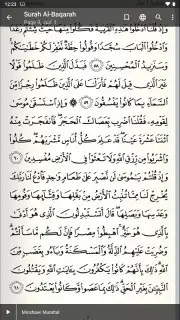 12:23
Surah Al-Baqarah
Page 9, Juz' 1
وَإِذْ قُلْنَا ٱدْخُلُوا۟ هَـٰذِهِ ٱلْقَرْيَةَ فَكُلُوا۟ مِنْهَا حَيْثُ شِئْتُمْ رَغَدًا
وَٱدْخُلُوا۟ ٱلْبَابَ سُجَّدًا وَقُولُوا۟ حِطَّةٌ نَّغْفِرْ لَكُمْ خَطَـٰيَـٰكُمْ
وَسَنَزِيدُ ٱلْمُحْسِنِينَ ٥٨ فَبَدَّلَ ٱلَّذِينَ ظَلَمُوا۟ قَوْلًا
غَيْرَ ٱلَّذِى قِيلَ لَهُمْ فَأَنزَلْنَا عَلَى ٱلَّذِينَ ظَلَمُوا۟ رِجْزًا مِّنَ
ٱلسَّمَآءِ بِمَا كَانُوا۟ يَفْسُقُونَ ٥٩ ۞ وَإِذِ ٱسْتَسْقَىٰ مُوسَىٰ
لِقَوْمِهِۦ فَقُلْنَا ٱضْرِب بِّعَصَاكَ ٱلْحَجَرَ فَٱنفَجَرَتْ مِنْهُ
ٱثْنَتَا عَشْرَةَ عَيْنًا قَدْ عَلِمَ كُلُّ أُنَاسٍ مَّشْرَبَهُمْ كُلُوا۟
وَٱشْرَبُوا۟ مِن رِّزْقِ ٱللَّهِ وَلَا تَعْثَوْا۟ فِى ٱلْأَرْضِ مُفْسِدِينَ ٦٠
وَإِذْ قُلْتُمْ يَـٰمُوسَىٰ لَن نَّصْبِرَ عَلَىٰ طَعَامٍ وَٰحِدٍ فَٱدْعُ لَنَا رَبَّكَ
يُخْرِجْ لَنَا مِمَّا تُنۢبِتُ ٱلْأَرْضُ مِنۢ بَقْلِهَا وَقِثَّآئِهَا وَفُومِهَا
وَعَدَسِهَا وَبَصَلِهَا قَالَ أَتَسْتَبْدِلُونَ ٱلَّذِى هُوَ أَدْنَىٰ
بِٱلَّذِى هُوَ خَيْرٌ ٱهْبِطُوا۟ مِصْرًا فَإِنَّ لَكُم مَّا سَأَلْتُمْ
وَضُرِبَتْ عَلَيْهِمُ ٱلذِّلَّةُ وَٱلْمَسْكَنَةُ وَبَآءُو بِغَضَبٍ مِّنَ
ٱللَّهِ ذَٰلِكَ بِأَنَّهُمْ كَانُوا۟ يَكْفُرُونَ بِـَٔايَـٰتِ ٱللَّهِ وَيَقْتُلُونَ
ٱلنَّبِيِّـۧنَ بِغَيْرِ ٱلْحَقِّ ذَٰلِكَ بِمَا عَصَوا۟ وَّكَانُوا۟ يَعْتَدُونَ ٦١
Minshawi Murattal